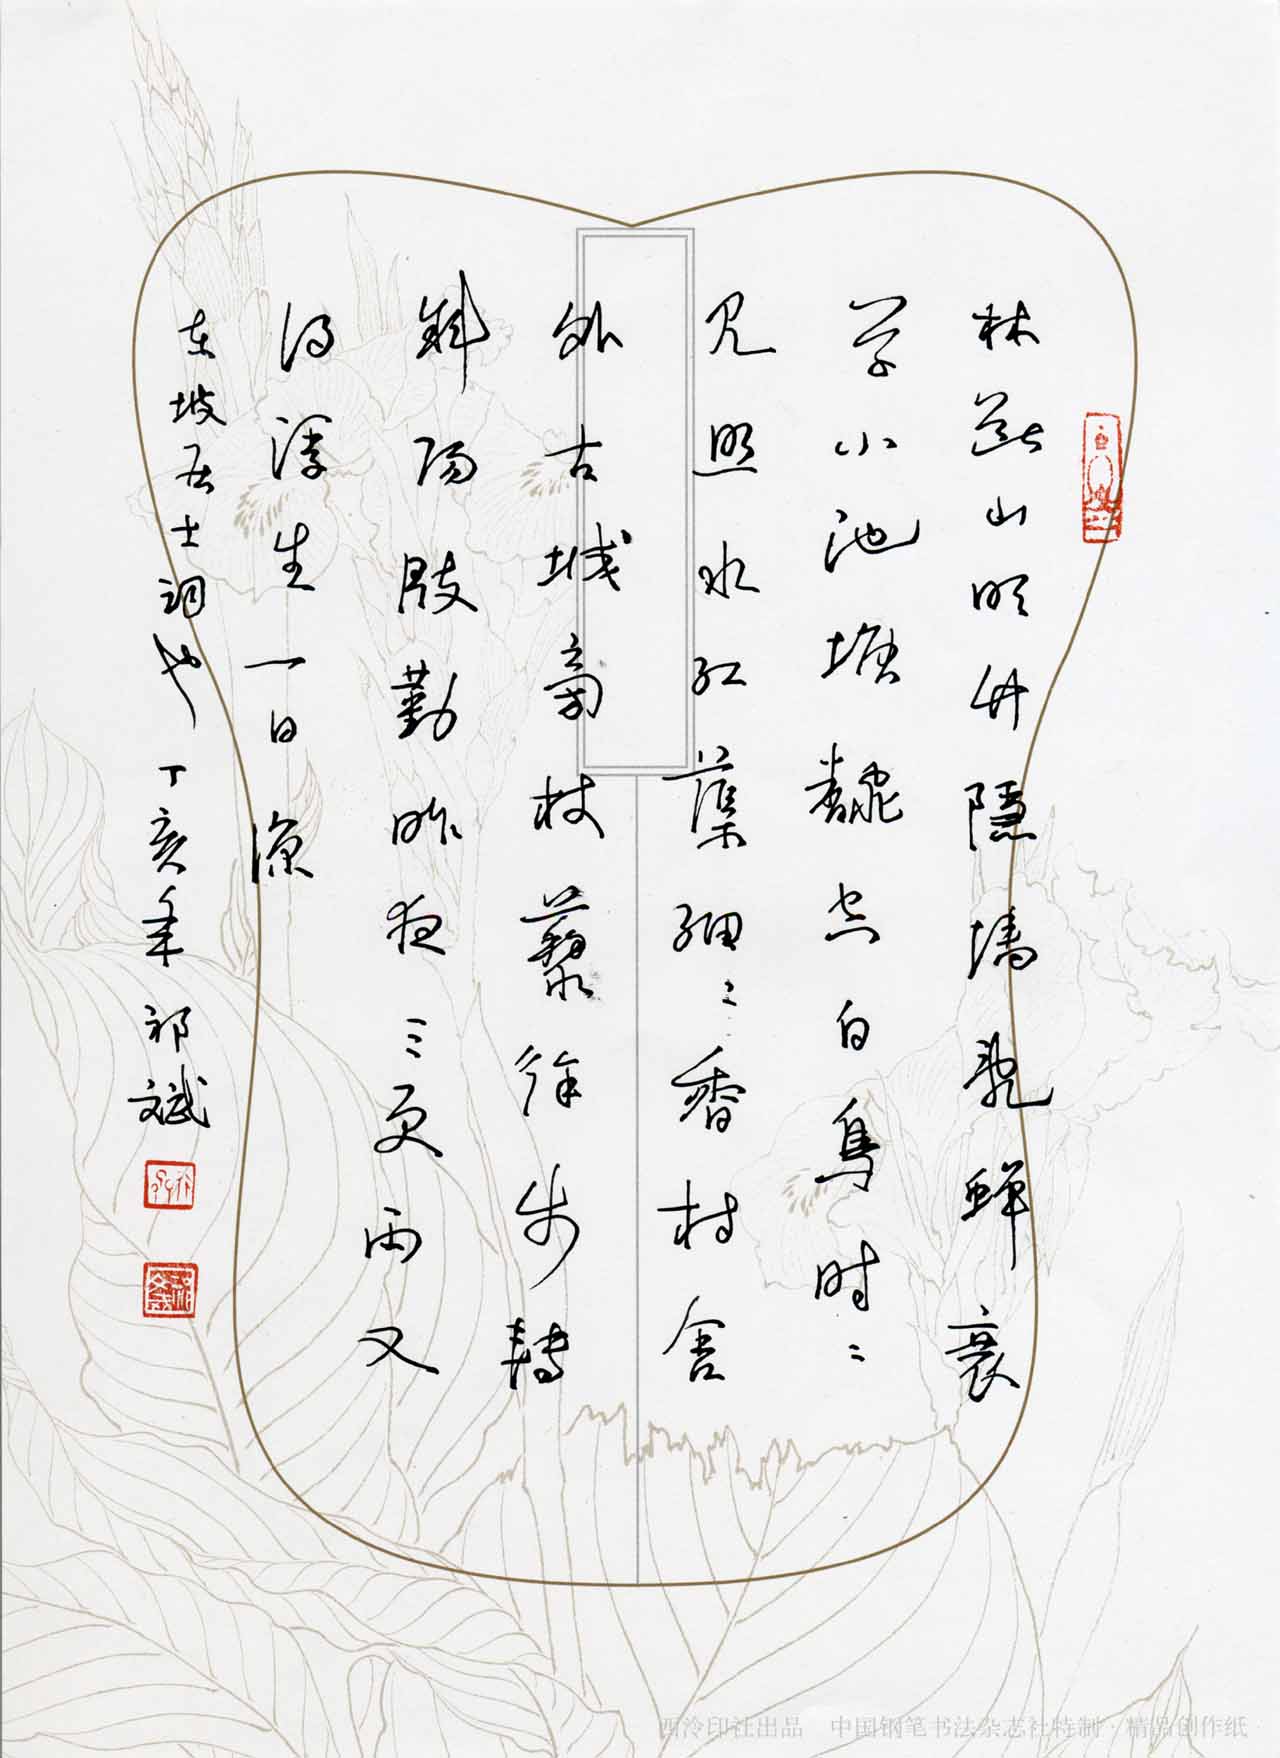 林断山明竹隐墙乱蝉衰
草小池塘翻空白鸟时〻
见照水红蕖细〻香村舍
外古城旁杖藜徐步转
斜阳殷勤昨夜三更雨又
得浮生一日凉
东坡居士词也丁亥年祁斌
西泠印社出品 中国钢笔书法杂志社特制·精品创作纸